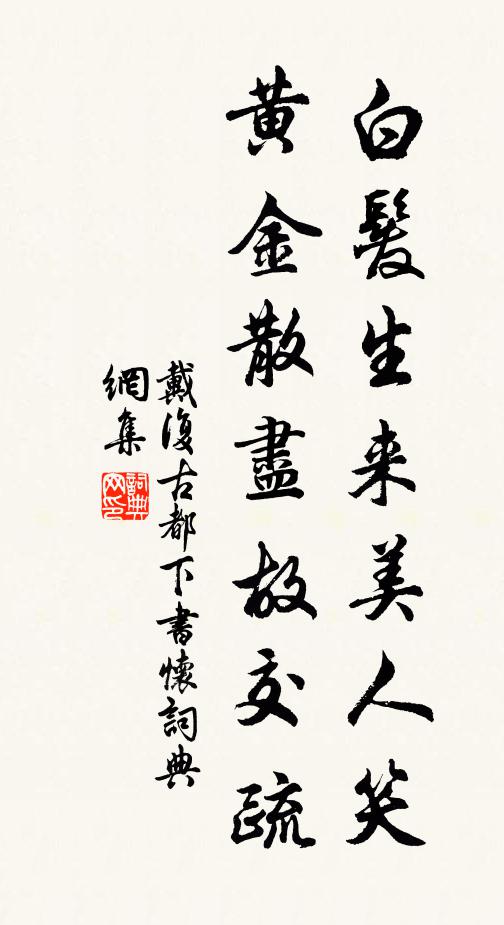 白髮生来美人笑
黃金散盡故交疏
戴復古都下書懷詞典
網集
詞典网印